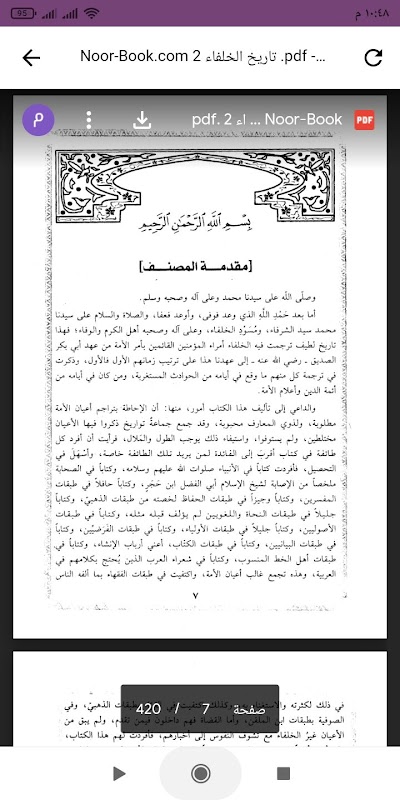 95
١٠:٤٨ م
Noor-Book.com تاريخ الخلفاء 2 .pdf -...
م
pdf. 2 اء ... Noor-Book
PDF
بِسْمِ اللَّهِ الرَّحْمَنِ الرَّحِيمِ
[مقدمة المصنف]
وصلّى اللَّه على سيدنا محمد وعلى آله وصحبه وسلم.
أما بعد حَمْدِ اللَّهِ الذي وعد فوفى، وأوعد فعفا، والصلاة والسلام على سيدنا
محمد سيد الشرفاء، ومُسَوَّدِ الخلفاء، وعلى آله وصحبه أهل الكرم والوفاء؛ فهذا
تاريخ لطيف ترجمت فيه الخلفاء أمراء المؤمنين القائمين بأمر الأمة من عهد أبي بكر
الصديق ـ رضي اللَّه عنه ـ إلى عهدنا هذا على ترتيب زمانهم الأول فالأول، وذكرت
في ترجمة كل منهم ما وقع في أيامه من الحوادث المستغربة، ومن كان في أيامه من
أئمة الدين وأعلام الأمة.
والداعي إلى تأليف هذا الكتاب أمور، منها: أن الإحاطة بتراجم أعيان الأمة
مطلوبة، ولذوي المعارف محبوبة، وقد جمع جماعةٌ تواريخ ذكروا فيها الأعيان
مختلطين، ولم يستوفوا، واستيفاء ذلك يوجب الطول والمَلال، فرأيت أن أفرد كل
طائفة في كتاب أقربَ إلى الفائدة لمن يريد تلك الطائفة خاصة، وأسْهَلَ في
التحصيل، فأفردت كتاباً في الأنبياء صلوات اللَّه عليهم وسلامه، وكتاباً في الصحابة
ملخصاً من الإصابة لشيخ الإسلام أبي الفضل ابن حَجَر، وكتاباً حافلاً في طبقات
المفسرين، وكتاباً وجيزاً في طبقات الحفاظ لخصته من طبقات الذهبيّ، وكتاباً
جليلاً في طبقات النحاة واللغويين لم يؤلف قبله مثله، وكتاباً في طبقات
الأصوليين، وكتاباً جليلاً في طبقات الأولياء، وكتاباً في طبقات الفَرَضيّين، وكتاباً
في طبقات البيانيين، وكتاباً في طبقات الكتّاب، أعني أرباب الإنشاء، وكتاباً في
طبقات أهل الخط المنسوب، وكتاباً في شعراء العرب الذين يُحتج بكلامهم في
العربية، وهذه تجمع غالب أعيان الأمة، واكتفيت في طبقات الفقهاء بما ألفه الناس
٧
في ذلك لكثرته والاستغناء به، وكذلك اكتفيت في طبقات الذهبيّ، وفي
الصوفية بطبقات ابن الملقن، وأما القضاة فهم داخلون فيمن تقدم، ولم يبق من
الأعيان غيرُ الخلفاء مع تشوف النفوس إلى أخبارهم، فأفردت لهم هذا الكتاب،
صفحة 7 / 420